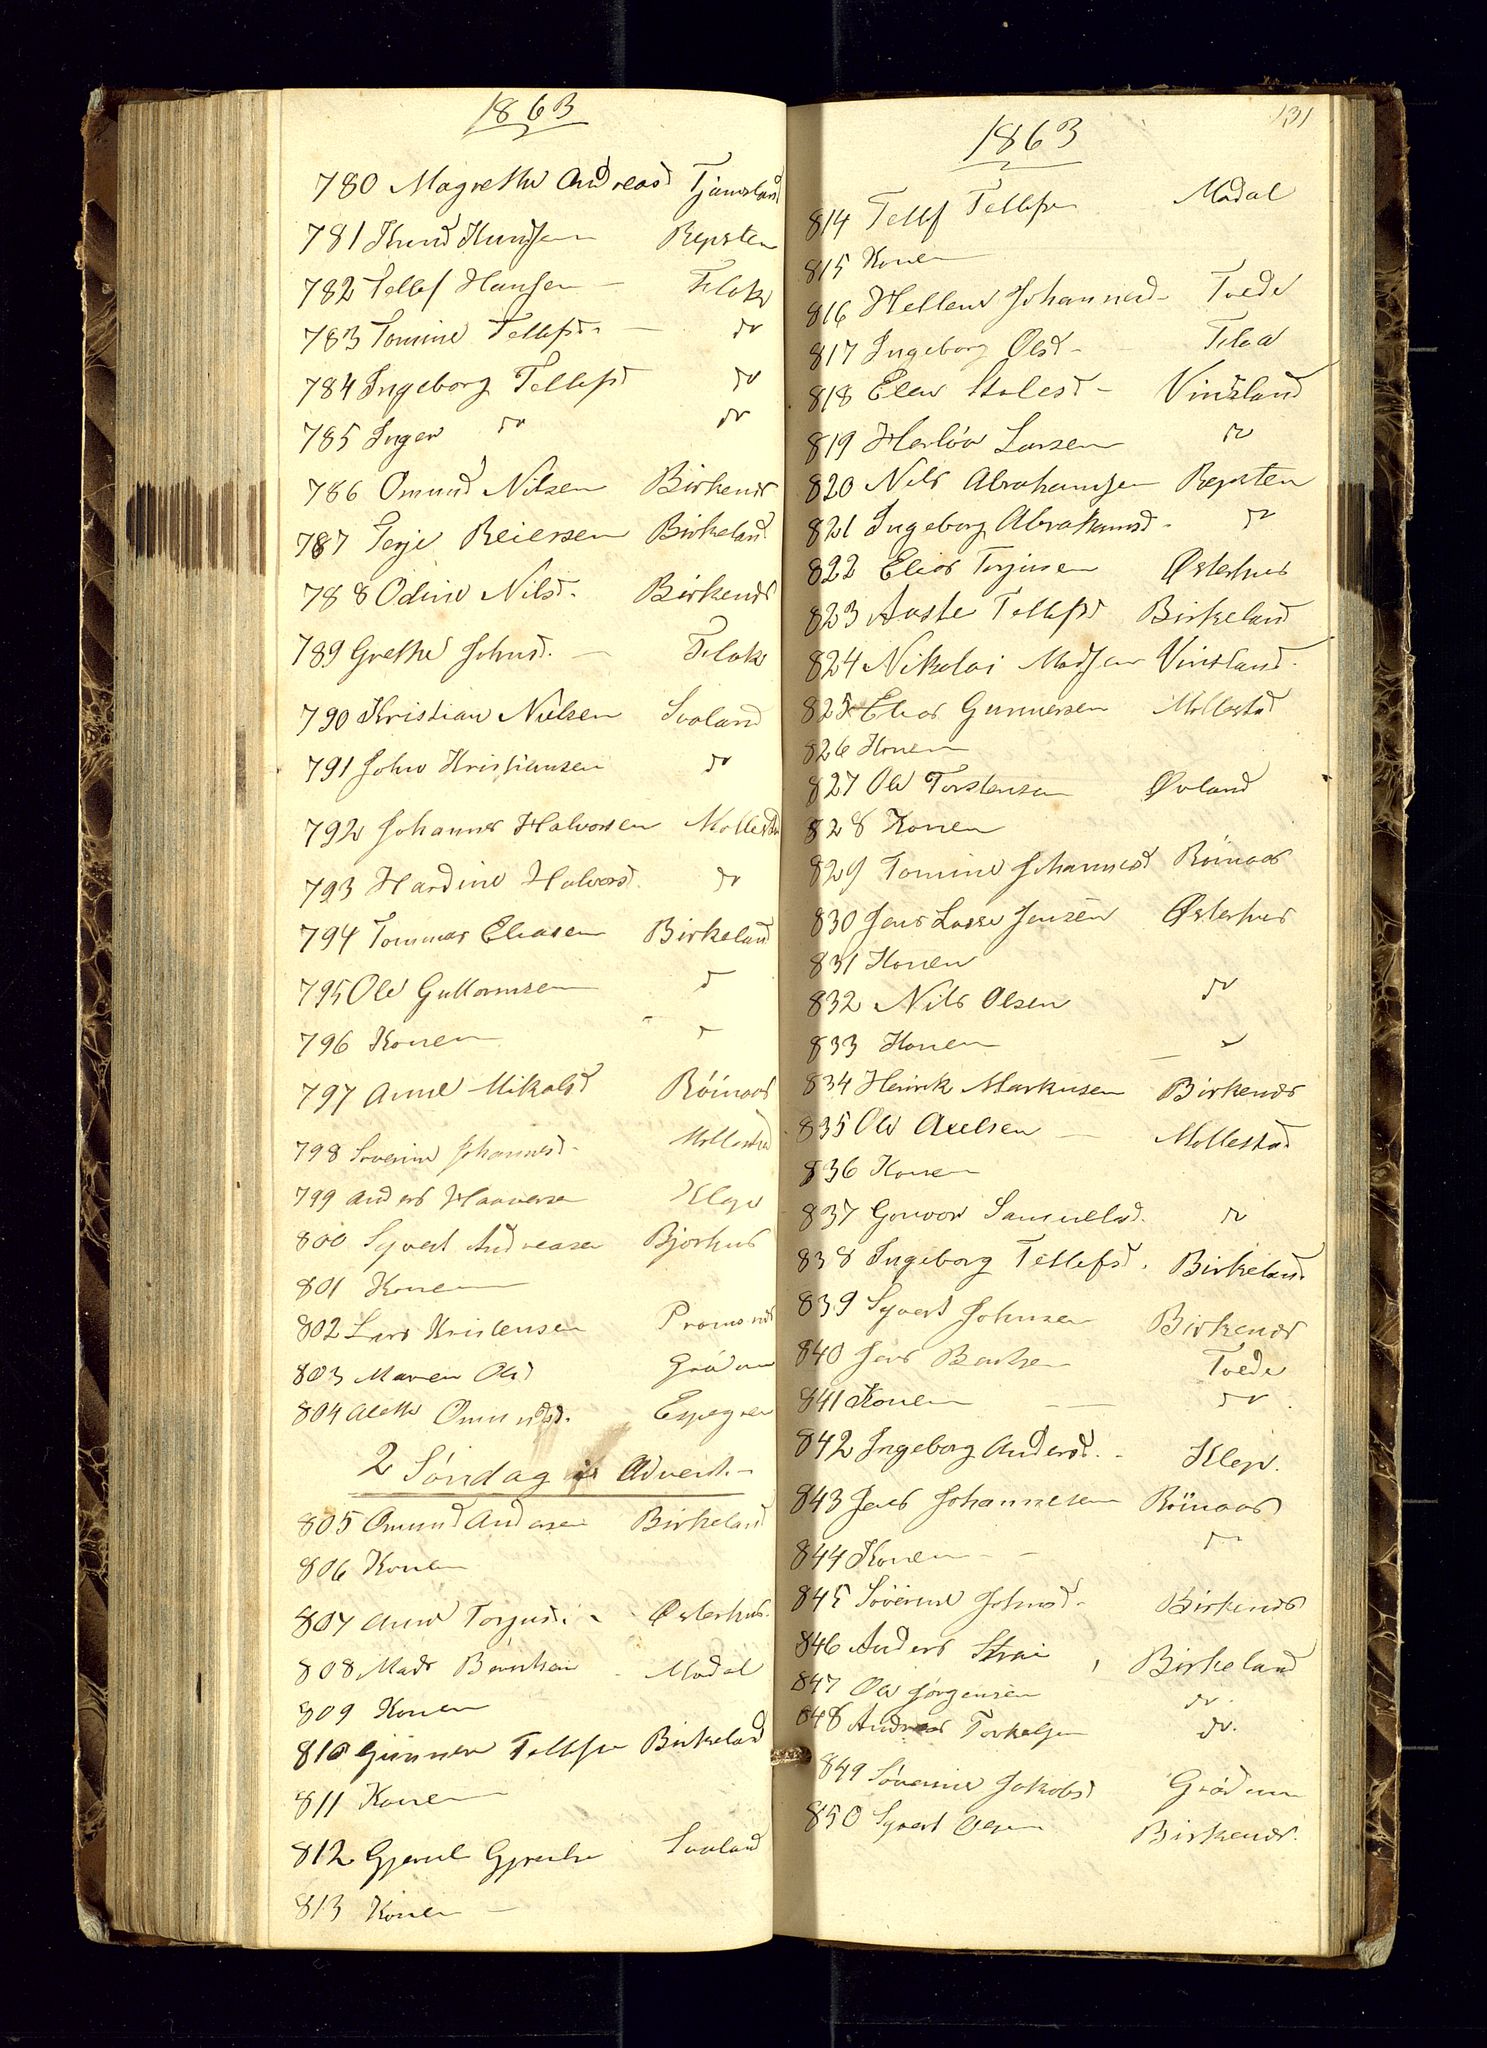 1863
780 Magrethe Andreasd Tjamsland
781 Knud Knudsen Repsten
782 Tellef Hansen - Flak
783 Tomine Tellefsd - do
784 Ingeborg Tellefsd do
785 Inger do do
786 Omund Nilsen Birkenes
787 Terje Reiersen Birkeland
788 Odine Nilsd. Birkenes
789 Grethe Johnsd. - Flak
790 Kristian Nielsen Svaland
791 John Kristiansen do
792 Johannes Halvorsen Mollestad
793 Hardine Halvorsd. do
794 Tommas Eliasen Birkeland
795 Ole Guttormsen do
796 Konen "
797 Anne Mikalsd Röinaas
798 Severine Johannesd. Mollestad
799 Anders Haaversen Klep
800 Syvert Andreasen Bjorhus
801 Konen
802 Lars Kristensen
803 Maren Olsd Grödum
804 Alethe Omundsd. Espegren
2 Söndag i Advent -
805 Omund Andersen Birkeland
806 Konen
807 Anne Torjusd - Østerhus.
808 Mads Berentsen - Modal
809 Konen
810 Gunner Tellefsen Birkeland
811 Konen
812 Gjerul Svaland
813 Konen -
131
1863
814 Tellef Tellefsen Modal
815 Konen
816 Hellene Johannesd - Tvede
817 Ingeborg Olsd - Flaa
818 Elen Stalesd - Vindsland
819 Herlöv Larsen do
820 Nils Abrahamsen Repsten
821 Ingeborg Abrahamsd. do
822 Elias Torjusen Østerhus
823 Aaste Tellefsd Birkeland
824 Nikolai Madsen Vindsland.
825 Elias Gunnersen Mollestad
826 Konen
827 Ole Torstensen Øvland
828 Konen
829 Tomine Johannesd Röinaas
830 Jens Lasse Jensen Østerhus
831 Konen
832 Nils Olsen do
833 Konen - do
834 Henrik Markusen Birkenes
835 Ole Axelsen - Mollestad
836 Konen
837 Gonvor Samuelsd. do
838 Ingeborg Tellefsd. Birkeland
839 Syvert Johnsen Birkenes
840 Jens Bentsen Tvede
841 Konen - - do
842 Ingeborg Andersd. - Klep.
843 Jens Johannesen Röinaas
844 Konen - - do
845 Söverine Johnsd - Birkenes
846 Anders Strai , Birkeland
847 Ole Jörgensen do
848 Andreas Torkelsen do.
849 Söverine Jakobsd Grödum
850 Syvert Olsen Birkenes.